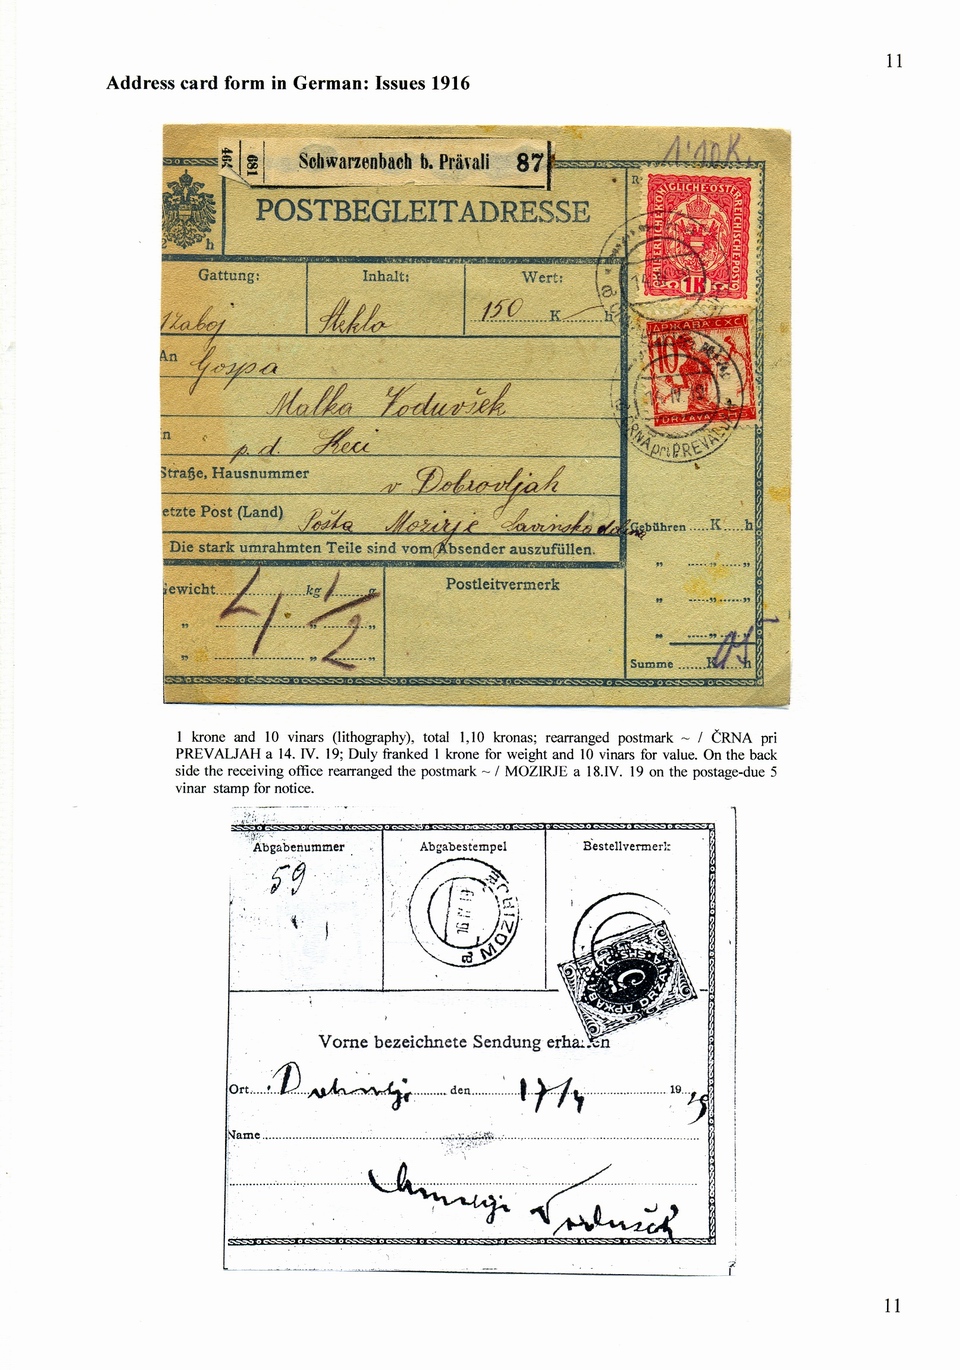 11
Address card form in German: Issues 1916
464
681
Schwarzenbach b. Prävali 87
1·10 K
h
POSTBEGLEITADRESSE
R
KAISERLICHE KÖNIGLICHE ÖSTERREICHISCHE POST
1K
Gattung: Inhalt: Wert:
zaboj Steklo 150 K h
ДРЖАВА СХС
10
DRŽAVA SHS
ČRNA pri PREVALJAH
An Gospa
Malka Voduvšek
p. d. Keci
Straße, Hausnummer v Dobrovljah
etzte Post (Land) Pošta Mozirje Savinska dolina
Gebühren K h
Die stark umrahmten Teile sind vom Absender auszufüllen.
Gewicht kg g
4 1/2
Postleitvermerk
Summe K h
1 krone and 10 vinars (lithography), total 1,10 kronas; rearranged postmark ~ / ČRNA pri
PREVALJAH a 14. IV. 19; Duly franked 1 krone for weight and 10 vinars for value. On the back
side the receiving office rearranged the postmark ~ / MOZIRJE a 18.IV. 19 on the postage-due 5
vinar stamp for notice.
Abgabenummer Abgabestempel Bestellvermerk
59
16 IV 19
a MOZIRJE
5
Vorne bezeichnete Sendung erhalten
Ort den 17/4 19 19
Name
Vodušek
11